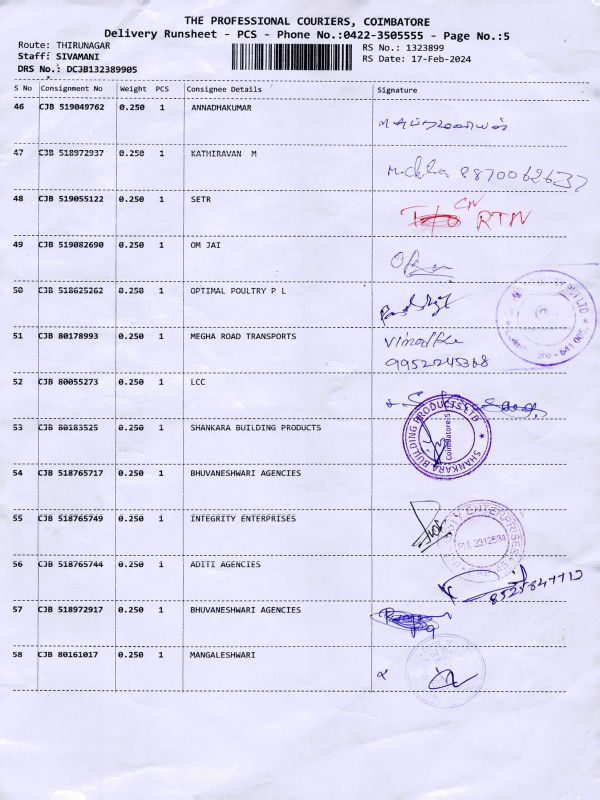 THE PROFESSIONAL COURIERS, COIMBATORE
Delivery Runsheet - PCS - Phone No.:0422-3505555 - Page No.:5
Route: THIRUNAGAR
RS No.: 1323899
Staff: SIVAMANI
RS Date: 17-Feb-2024
DRS No.: DCJB132389905
S No Consignment No Weight PCS Consignee Details Signature
46 CJB 519049762 0.250 1 ANNADHAKUMAR
47 CJB 518972937 0.250 1 KATHIRAVAN M
8870062637
48 CJB 519055122 0.250 1 SETR
RTN
49 CJB 519082690 0.250 1 OM JAI
50 CJB 518625262 0.250 1 OPTIMAL POULTRY P L
51 CJB 80178993 0.250 1 MEGHA ROAD TRANSPORTS
9952245368
52 CJB 80055273 0.250 1 LCC
53 CJB 80183525 0.250 1 SHANKARA BUILDING PRODUCTS
SHANKARA BUILDING PRODUCTS LTD
Coimbatore-5
54 CJB 518765717 0.250 1 BHUVANESHWARI AGENCIES
55 CJB 518765749 0.250 1 INTEGRITY ENTERPRISES
ENTERPRISES
56 CJB 518765744 0.250 1 ADITI AGENCIES
57 CJB 518972917 0.250 1 BHUVANESHWARI AGENCIES
58 CJB 80161017 0.250 1 MANGALESHWARI